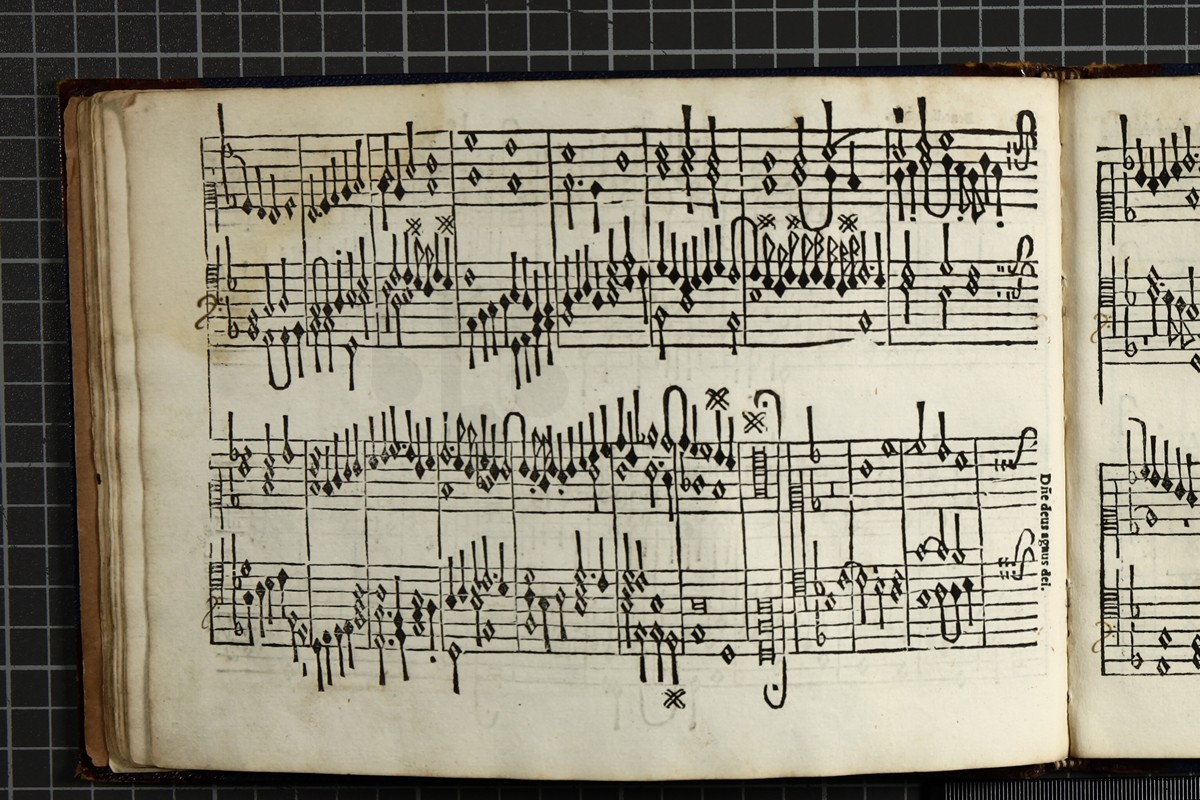 Dñe deus agnus dei.